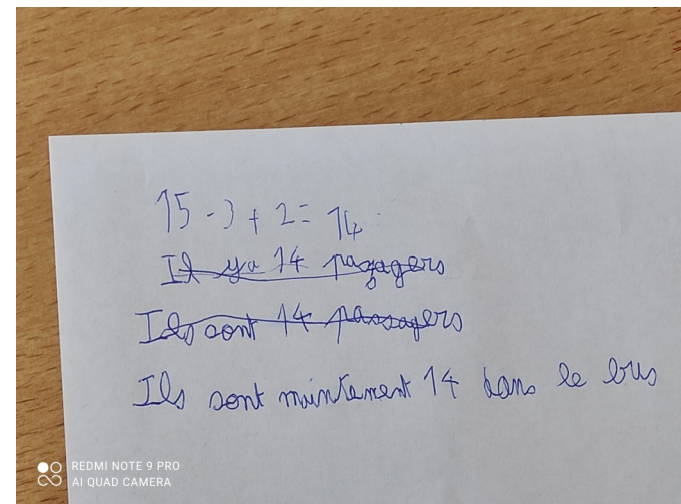 15 - 3 + 2 = 14
Il ya 14 pazagers
Ils sont 14 passagers
Ils sont maintenent 14 dans le bus
REDMI NOTE 9 PRO
AI QUAD CAMERA